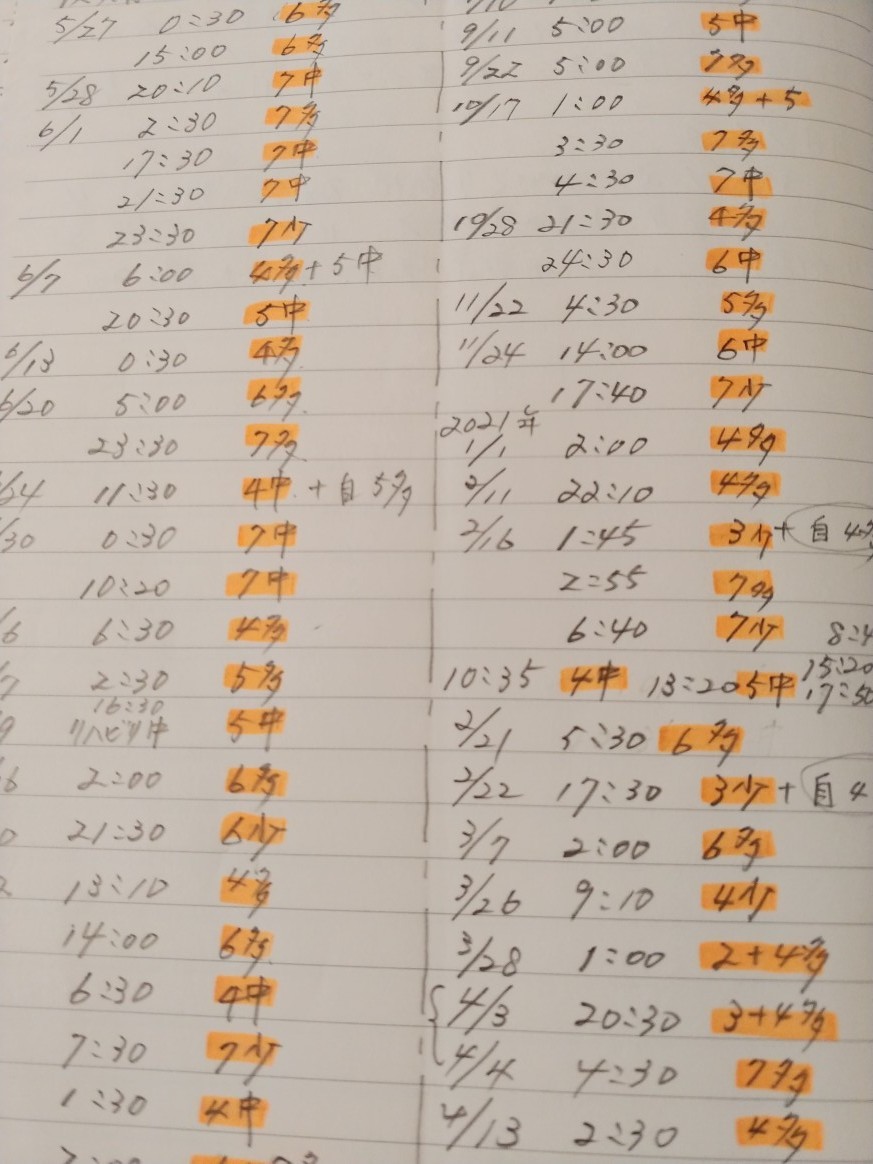 5/27 0:30 6多
15:00 6多
5/28 20:10 7中
6/1 2:30 7多
17:30 7中
21:30 7中
23:30 7少
6/7 6:00 4多+5中
20:30 5中
6/13 0:30 4多
6/20 5:00 6多
23:30 7多
/24 11:30 4中 +自5多
/30 0:30 7中
10:20 7中
/6 6:30 4多
/7 2:30 5多
16:30
9 リハビリ中 5中
6 2:00 6多
0 21:30 6少
2 13:10 4多
14:00 6多
6:30 4中
7:30 7少
1:30 4中
9/11 5:00 5中
9/22 5:00 7多
10/17 1:00 4多+5
3:30 7多
4:30 7中
10/28 21:30 4多
24:30 6中
11/22 4:30 5多
11/24 14:00 6中
17:40 7少
2021年
1/1 2:00 4多
2/11 22:10 4多
2/16 1:45 3少+自4多
2:55 7多
6:40 7少 8:4
10:35 4中 13:20 5中 15:20
17:50
2/21 5:30 6多
2/22 17:30 3少+自4
3/7 2:00 6多
3/26 9:10 4少
3/28 1:00 2+4多
4/3 20:30 3+4多
4/4 4:30 7多
4/13 2:30 4多